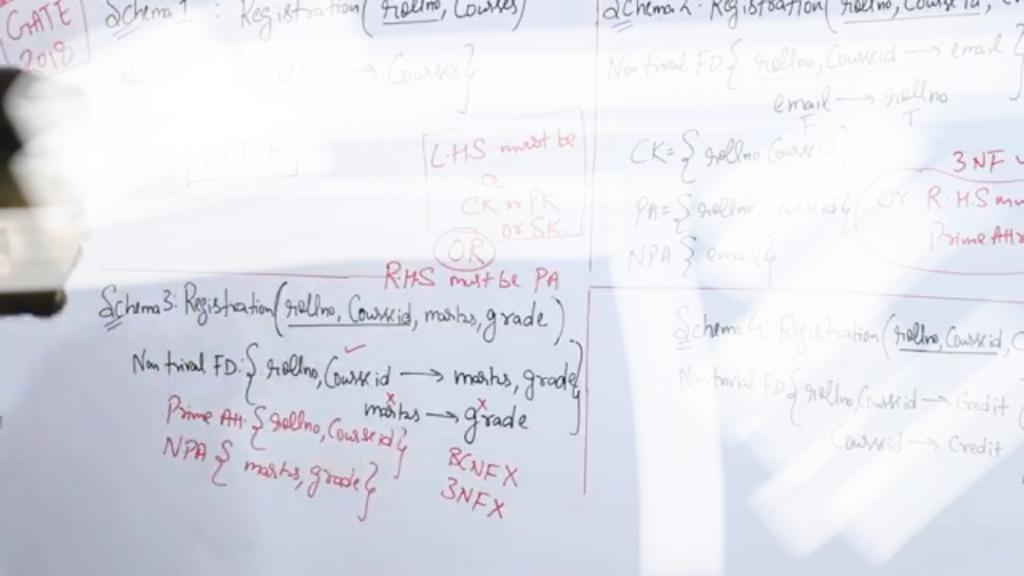 GATE 2018
Schema 1 : Registration(rollno, Courses)
rollno → Courses}
BCNF
L.H.S must be
a
CK or PK
or SK.
OR
R.H.S must be PA
Schema 2: Registration(rollno, Courseid,
Non trivial FD{ rollno, Courseid → email }
email → rollno
F T
CK={ rollno Courseid }
3NF
PA={ rollno, courseid}
OR R.H.S
Prime
NPA { email}
Schema 3: Registration(rollno, Courseid, marks, grade)
Non trival FD:{ rollno, Courseid → marks, grade
marks → grade }
x x
Prime Att. { rollno, Courseid}
NPA { marks, grade}
BCNF X
3NF X
Schema 4. Registration(rollno, Courseid,
Non trivial FD{ rollno, Courseid → Credit
Courseid → Credit